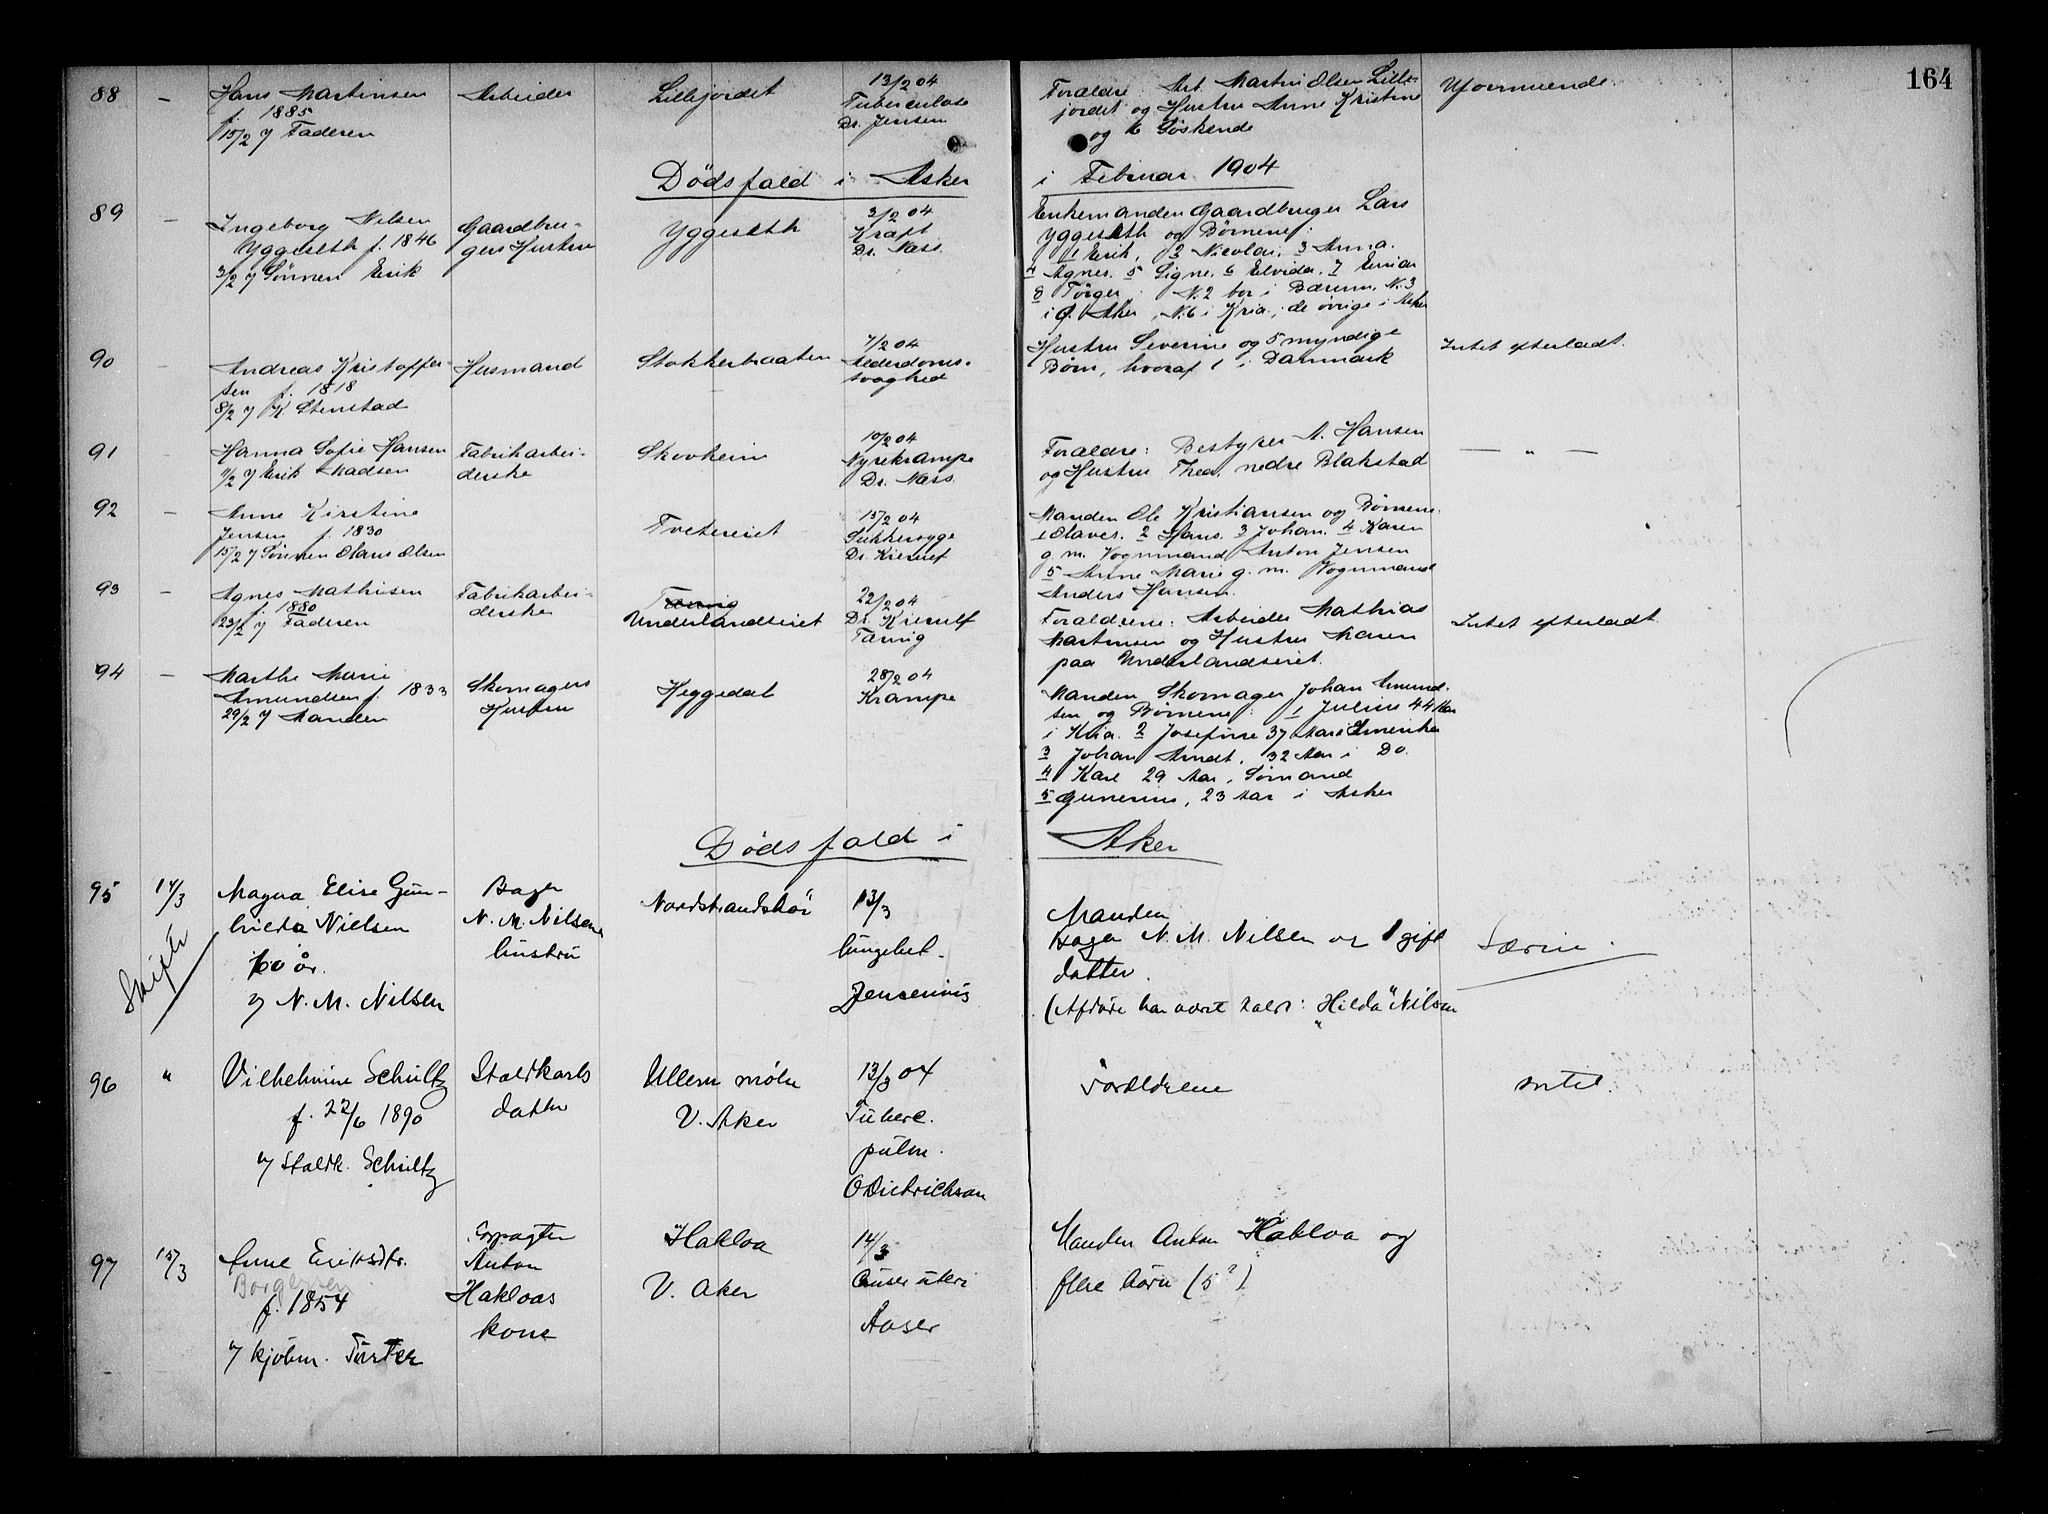 164
88 – Hans Martinsen Arbeider Lillejordet 13/2 04 Forældre: Arb. Martin Olsen Lille- Uformuende.
f. 1885 Tuberkulose jordet og Hustru Anne Kristine
15/2 7 Faderen Dr. Jensen og 6 Søskende
Dödsfald i Asker i Februar 1904
89 – Ingeborg Nilsen Gaardbru- Yggeseth 2/2 04 Enkemanden Gaardbruger Lars
Yggeseth f. 1846 gers Hustru Kræft Yggeseth og Børnene:
3/2 7 Sönnen Erik Dr. Næss. 1 Erik, 2 Nicolai, 3 Anna.
4 Agnes. 5 Signe. 6 Elvida. 7
8 Törger. N. 2 bor i Bærum. N. 3
i Ø. Aker, N. 6 i Kria., de övrige i Asker
90 – Andreas Kristoffer- Husmand Stokkerbraaten 7/2 04 Hustru Severine og 5 myndige Intet efterladt.
sen f. 1818 Alderdoms- Børn, hvoraf 1 i Danmark
8/2 7 K. Stenstad svaghed
91 – Hanna Sofie Hansen Fabrikarbei- Skovheim 10/2 04 Forældre: Bestyrer A. Hansen — „ —
7 Erik Madsen derske Nyrekrampe og Hustru Thea, nedre Blakstad
Dr. Næss
92 – Anne Kirstine Tvetereiet 15/2 04 Manden Ole Kristiansen og Børnene:
Jensen f. 1830 Sukkersyge 1 Olaves. 2 Hans. 3 Johan. 4 Karen
15/2 7 Sönnen Olaus Olsen Dr. Kierulf g. m. Vognmand Anton Jensen
5 Anne Marie g. m. Vognmand
Anders Hansen.
93 – Agnes Mathisen Fabrikarbei- Tæring 22/2 04 Forældrene: Arbeider Mathias Intet efterladt
f. 1880 derske Underlandseiet Dr. Kierulf Martinsen og Hustru Maren
23/2 7 Faderen Tæring paa Underlandseiet.
94 – Marthe Marie Skomagers Heggedal 28/2 04 Manden Skomager Johan Amund-
Amundsen f. 1833 Hustru Krampe sen og Børnene: 1 Julius 44 Aar
29/2 7 Manden i Kria. 2 Josefine 37 Aar i Amerika
3 Johan Arndt, 32 Aar i Do.
4 Karl 29 Aar, Sömand
5 Gunerius, 23 Aar i Asker
Dødsfald i Aker
95 14/3 Magna Elise Gun- Bager Nordstrandshøi 13/3 Manden
hilda Nielsen N. M. Nilsens lungebet. Bager N. M. Nilsen og 1 gift Særeie.
Skifte 60 år. hustru datter.
7 N. M. Nilsen Jensenius (Afdøde har været kaldt: "Hilda" Nilsen
96 " Vilhelmine Schultz Staldkarls Ullern mølle 13/3 04 Forældrene intet.
f. 22/6 1890 datter V. Aker Tuberc.
7 Staldk. Schultz pulm.
O Dietrichson
97 15/3 Anne Eriksdtr. Forpagter Hakloa 14/3 Manden Anton Hakloa og
Anton V. Aker flere børn (5?)
f. 1854 Hakloas Aaser
7 kjøbm. kone